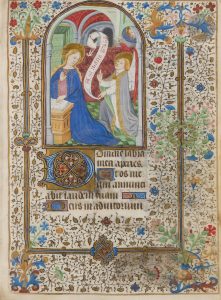 Domine labia
mea aperies
Et os me
um annunci
abit laudem tuam
Deus in adiutorium